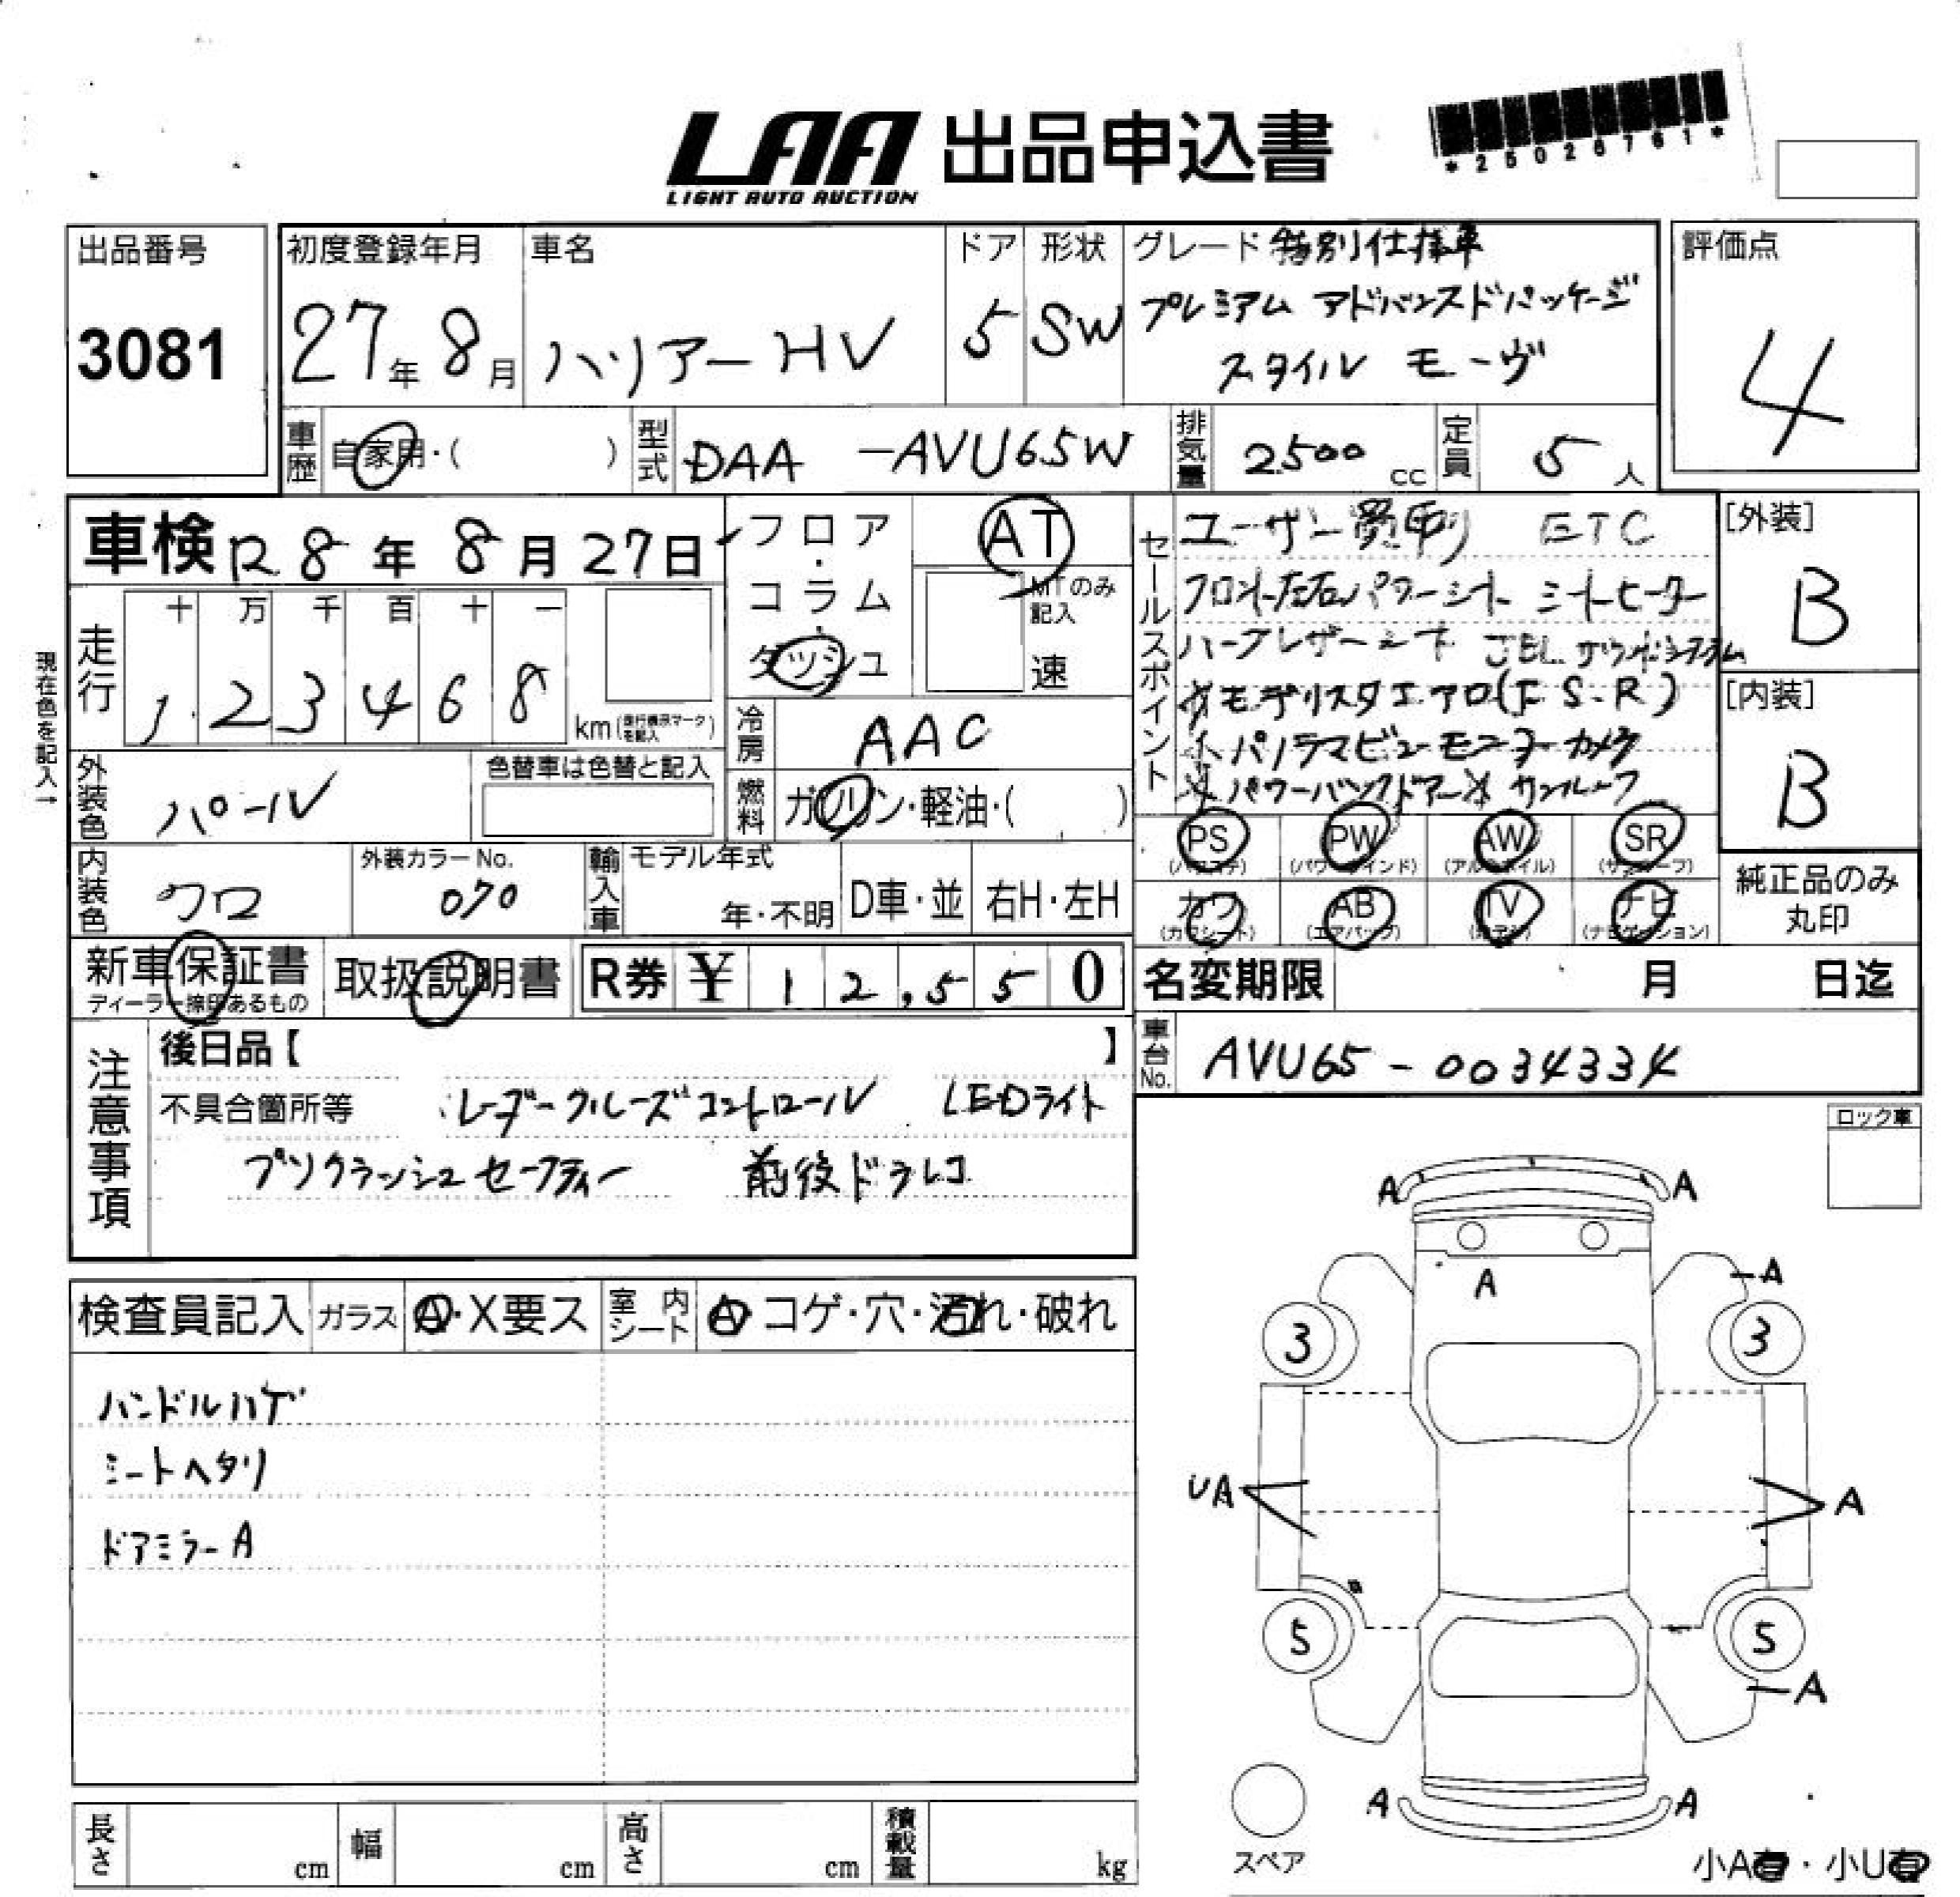 LAA 出品申込書
LIGHT AUTO AUCTION
*25026761*
出品番号
3081
初度登録年月
27年8月
車名
ハリアーHV
ドア
5
形状
SW
グレード 特別仕様車
プレミアム アドバンスドパッケージ
スタイル モーヴ
評価点
4
車歴 自家用・( )
型式 DAA-AVU65W
排気量 2500 cc
定員 5人
車検 R8年8月27日
フロア・コラム・ダッシュ
AT
MTのみ記入
速
走行
十 万 千 百 十 一
1 2 3 4 6 8 km (走行機示マークを記入)
現在色を記入→
冷房 AAC
燃料 ガソリン・軽油・( )
外装色 パール
色替車は色替と記入
内装色 クロ
外装カラーNo. 070
輸入車 モデル年式 年・不明 D車・並 右H・左H
セールスポイント
ユーザー買取り ETC
フロント左右パワーシート シートヒーター
ハーフレザーシート JBLサウンドシステム
モデリスタエアロ(F.S.R)
パノラマビューモニターカメラ
パワーバックドアー サンルーフ
[外装]
B
[内装]
B
PS (パワステ) PW (パワーウインド) AW (アルミホイル) SR (サンルーフ)
カワ (カワシート) AB (エアバック) TV (地デジ) ナビ (ナビゲーション)
純正品のみ丸印
新車保証書 ディーラー捺印あるもの
取扱説明書
R券 ¥ 12,550
名変期限 月 日迄
車台No. AVU65-0034334
注意事項
後日品【 】
不具合箇所等 レーダークルーズコントロール LEDライト
プリクラッシュセーフティー 前後ドラレコ
ロック車
検査員記入 ガラス A・X要ス 室内シート A・コゲ・穴・汚れ・破れ
ハンドルハゲ
シートヘタリ
ドアミラーA
A A
A
A
3 3
UA A
5 5
A
A A
スペア
長さ cm 幅 cm 高さ cm 積載量 kg
小A有・小U有